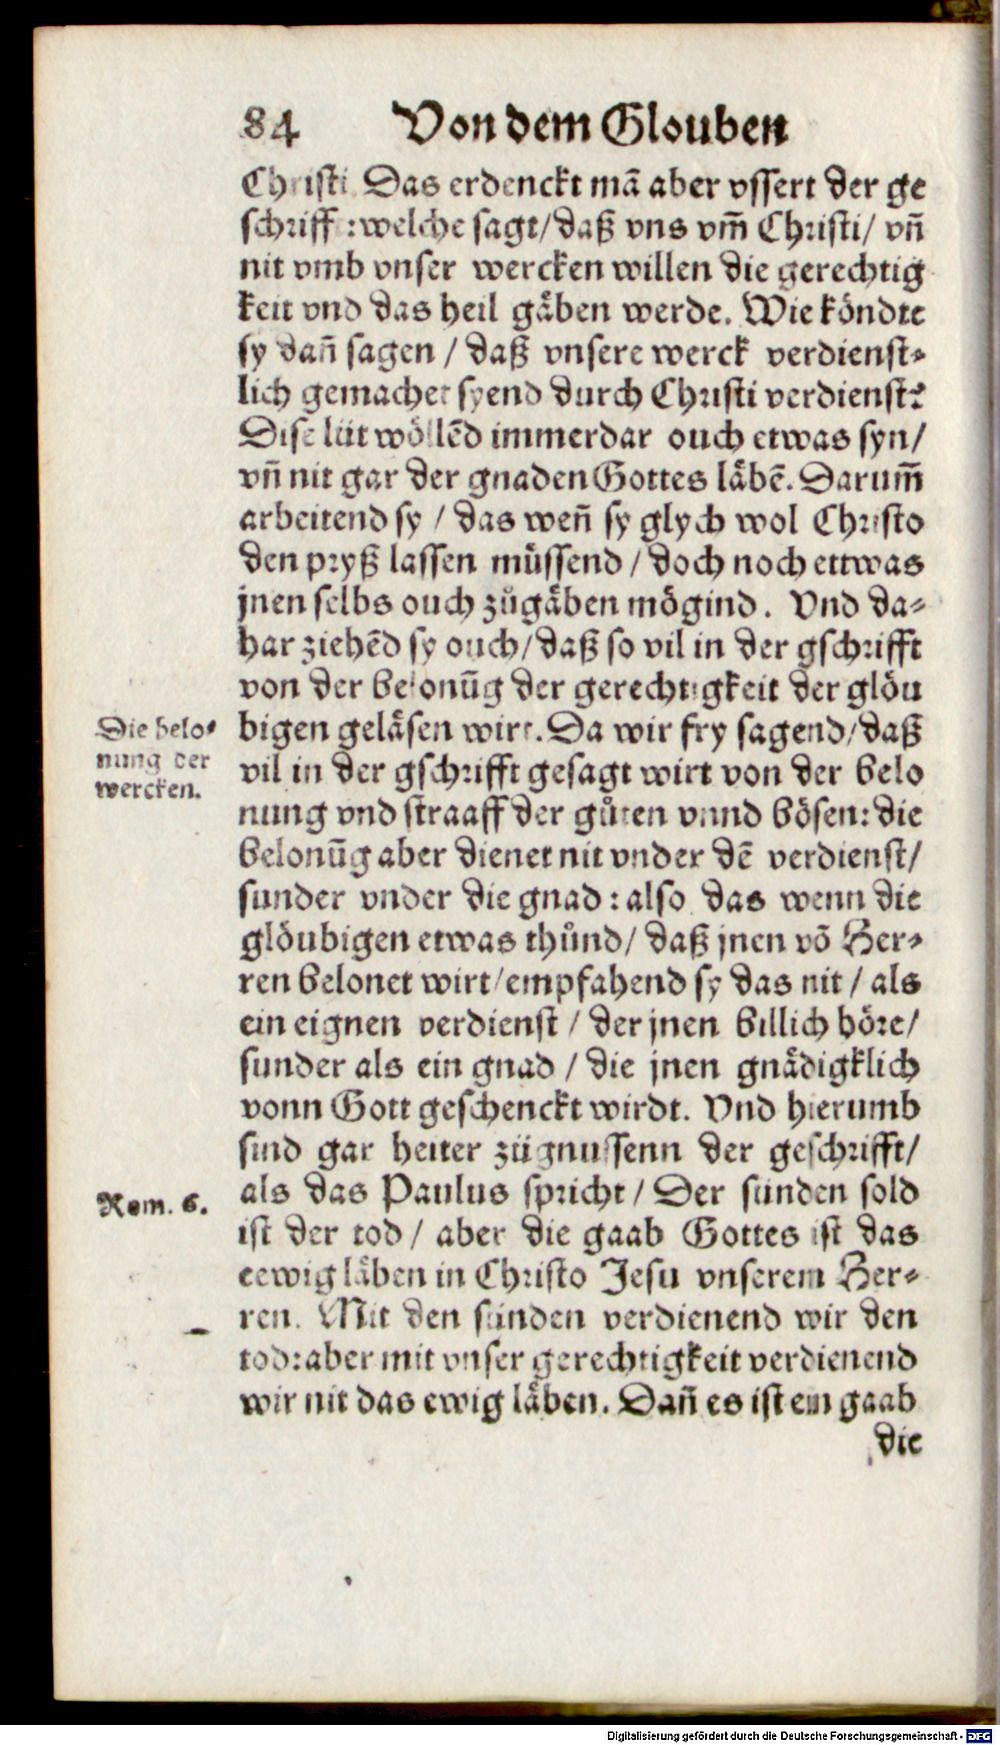 84 Von dem Glouben
Christi. Das erdenckt mā aber vssert der ge
schrifft: welche sagt/ daß vns vm̄ Christi/ vn̄
nit vmb vnser wercken willen die gerechtig
keit vnd das heil gåben werde. Wie köndte
sy dan̄ sagen / daß vnsere werck verdienst⸗
lich gemachet syend durch Christi verdienst?
Dise lüt wöllēd immerdar ouch etwas syn/
vn̄ nit gar der gnaden Gottes låbē. Darum̄
arbeitend sy / das wen̄ sy glych wol Christo
den pryß lassen müssend / doch noch ettwas
jnen selbs ouch zůgåben mögind. Vnd da⸗
har ziehēd sy ouch/ daß so vil in der gschrifft
von der belonūg der gerechtigkeit der glöu
Die belo⸗
nung der
wercken.
bigen gelåsen wirt. Da wir fry sagend/ daß
vil in der gschrifft gesagt wirt von der belo
nung vnd straaff der gůten vnnd bösen: die
belonūg aber dienet nit vnder dē verdienst/
sunder vnder die gnad: also das wenn die
glöubigen etwas thůnd/ daß jnen vō Her⸗
ren belonet wirt/ empfahend sy das nit / als
ein eignen verdienst / der jnen billich höre/
sunder als ein gnad / die jnen gnådigklich
vonn Gott geschenckt wirdt. Vnd hierumb
sind gar heiter zügnussenn der geschrifft/
Rom. 6.
als das Paulus spricht / Der sünden sold
ist der tod / aber die gaab Gottes ist das
eewig låben in Christo Jesu vnserem Her⸗
ren. Mit den sünden verdienend wir den
tod: aber mit vnser gerechtigkeit verdienend
wir nit das ewig låben. Dan̄ es ist ein gaab
die
Digitalisierung gefördert durch die Deutsche Forschungsgemeinschaft - DFG